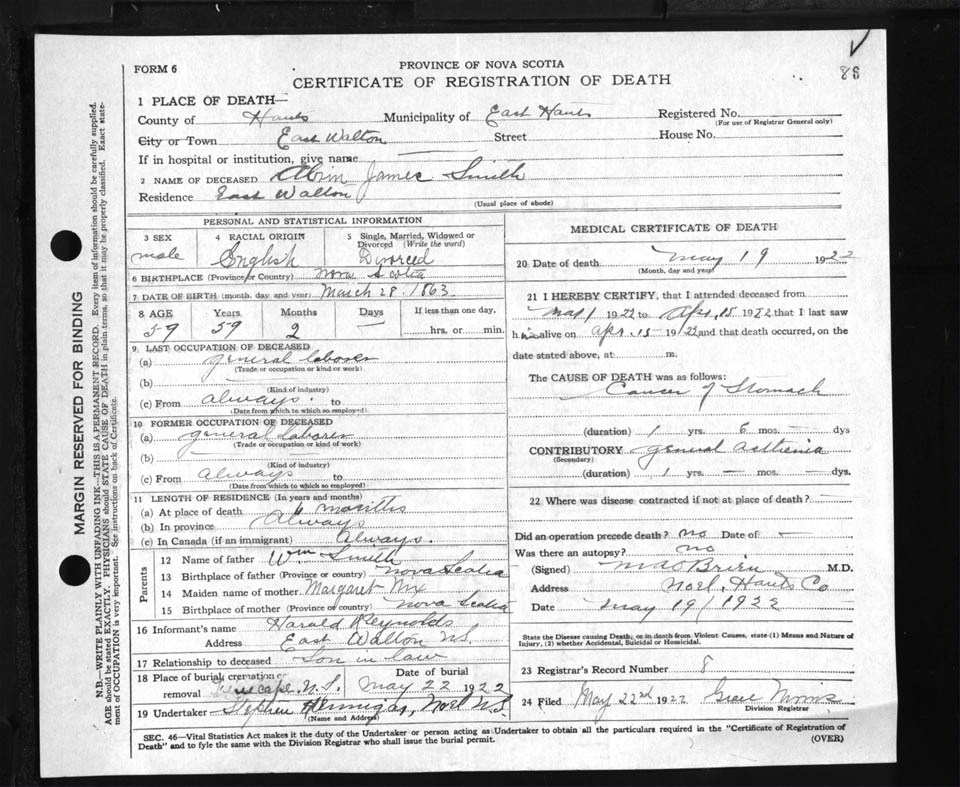 86
FORM 6
PROVINCE OF NOVA SCOTIA
CERTIFICATE OF REGISTRATION OF DEATH
1 PLACE OF DEATH—
County of Hants Municipality of East Hants Registered No.
(For use of Registrar General only)
City or Town East Walton Street House No.
If in hospital or institution, give name —
2 NAME OF DECEASED James Smith
Residence East Walton
(Usual place of abode)
PERSONAL AND STATISTICAL INFORMATION
3 SEX 4 RACIAL ORIGIN 5 Single, Married, Widowed or Divorced (Write the word)
male English Divorced
6 BIRTHPLACE (Province or Country) Nova Scotia
7 DATE OF BIRTH (month, day and year) March 28. 1863
8 AGE Years Months Days If less than one day,
59 59 2 — hrs. or min.
9 LAST OCCUPATION OF DECEASED
(a) general laborer
(Trade or occupation or kind of work)
(b) —
(Kind of industry)
(c) From always. to
(Date from which to which so employed)
10 FORMER OCCUPATION OF DECEASED
(a) general laborer
(Trade or occupation or kind of work)
(b) —
(Kind of industry)
(c) From always to
(Date from which to which so employed)
11 LENGTH OF RESIDENCE (In years and months)
(a) At place of death months
(b) In province Always
(c) In Canada (if an immigrant) Always.
Parents
12 Name of father Wm Smith
13 Birthplace of father (Province or country) Nova Scotia
14 Maiden name of mother Margaret
15 Birthplace of mother (Province or country) Nova Scotia
16 Informant's name Harold Reynolds
Address East Walton N.S.
17 Relationship to deceased Son in law
18 Place of burial cremation or removal N.S. Date of burial May 22 1922
19 Undertaker Stephen Hennigar, Noel N.S.
(Name and Address)
MEDICAL CERTIFICATE OF DEATH
20 Date of death May 19 1922
(Month, day and year)
21 I HEREBY CERTIFY, that I attended deceased from
1922 to Apr. 15 1922 that I last saw
h im alive on Apr. 15 1922 and that death occurred, on the
date stated above, at m.
The CAUSE OF DEATH was as follows:
Cancer of Stomach
(duration) 1 yrs. 6 mos. — dys
CONTRIBUTORY general asthenia
(Secondary)
(duration) 1 yrs. — mos. — dys.
22 Where was disease contracted if not at place of death? —
Did an operation precede death? no Date of —
Was there an autopsy? no
(Signed) M.D.
Address Noel, Hants Co
Date May 19/1922
State the Disease causing Death, or in death from Violent Causes, state (1) Means and Nature of
Injury, (2) whether Accidental, Suicidal or Homicidal.
23 Registrar's Record Number 8
24 Filed May 22nd 1922
Division Registrar
SEC. 46—Vital Statistics Act makes it the duty of the Undertaker or person acting as Undertaker to obtain all the particulars required in the "Certificate of Registration of
Death" and to fyle the same with the Division Registrar who shall issue the burial permit.
(OVER)
MARGIN RESERVED FOR BINDING
N.B.—WRITE PLAINLY WITH UNFADING INK—THIS IS A PERMANENT RECORD. Every item of information should be carefully supplied.
AGE should be stated EXACTLY. PHYSICIANS should STATE CAUSE OF DEATH in plain terms, so that it may be properly classified. Exact state-
ment of OCCUPATION is very important. See instructions on back of Certificate.